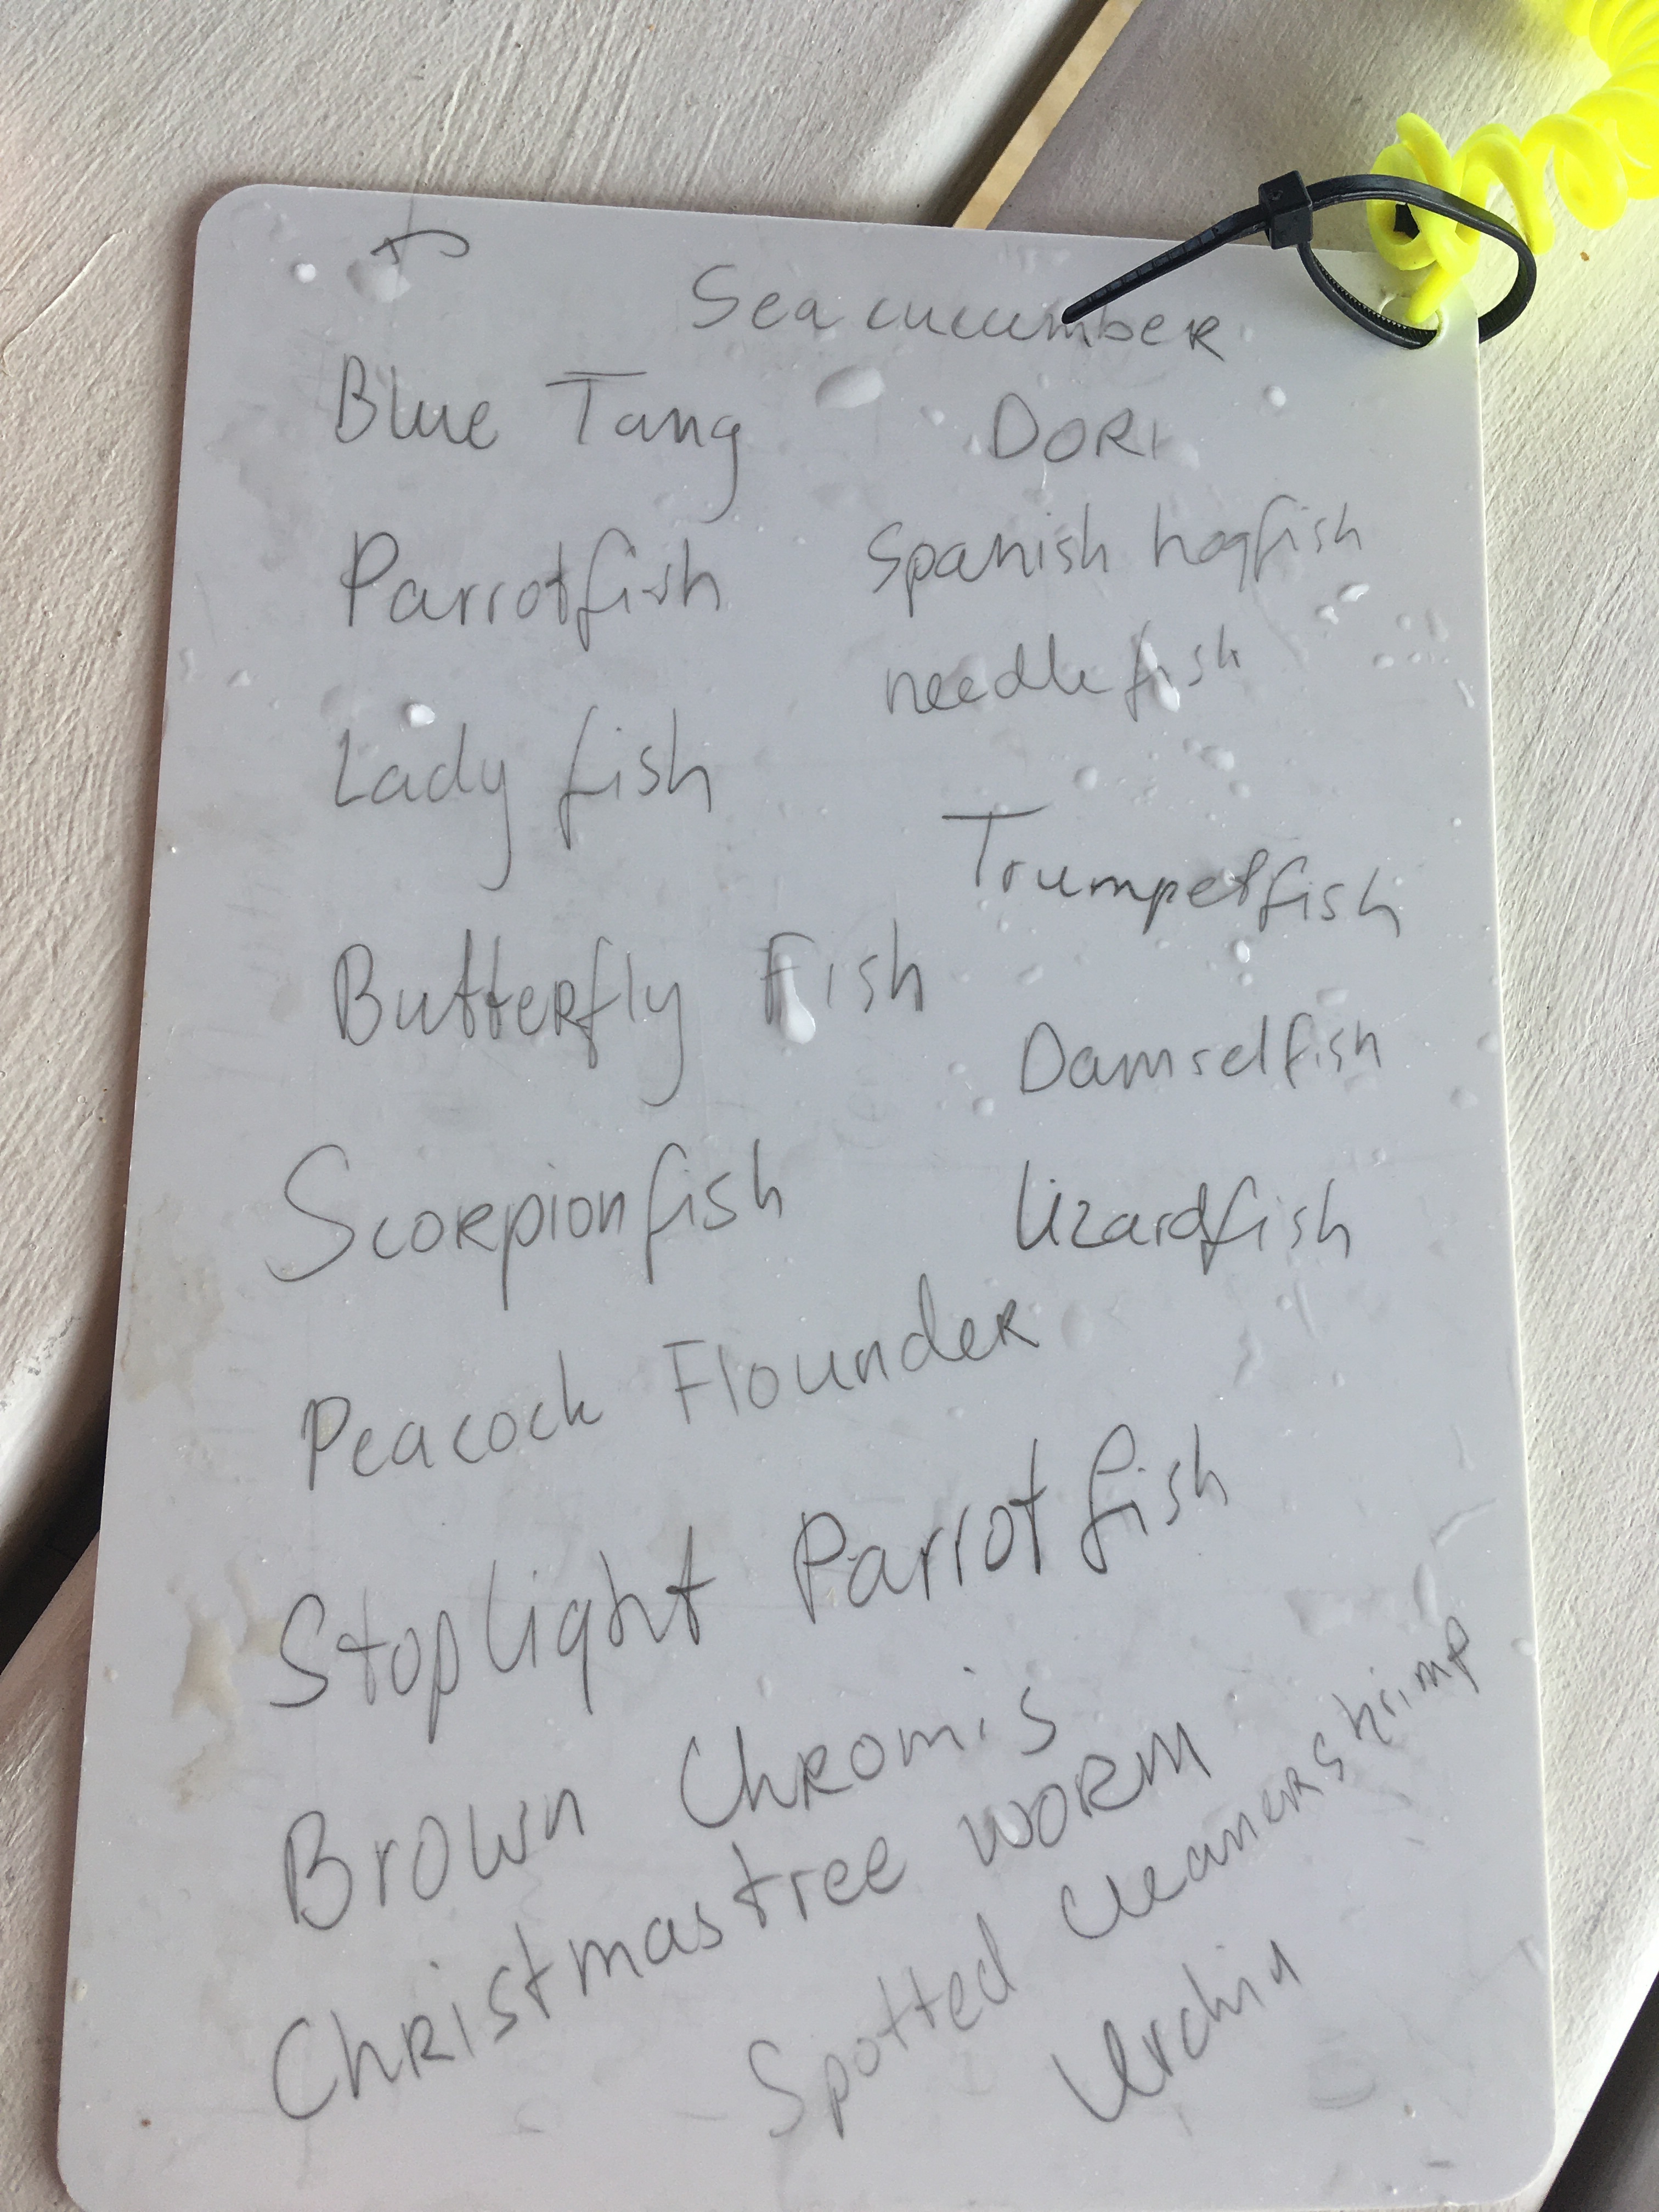 Sea cucumber
Blue Tang DORI
Parrotfish Spanish hogfish
needle fish
Lady fish
Trumpetfish
Butterfly Fish
Damselfish
Scorpionfish
Lizardfish
Peacock Flounder
Stoplight Parrotfish
Brown Chromis
Christmastree worm
Spotted cleanershrimp
Urchin